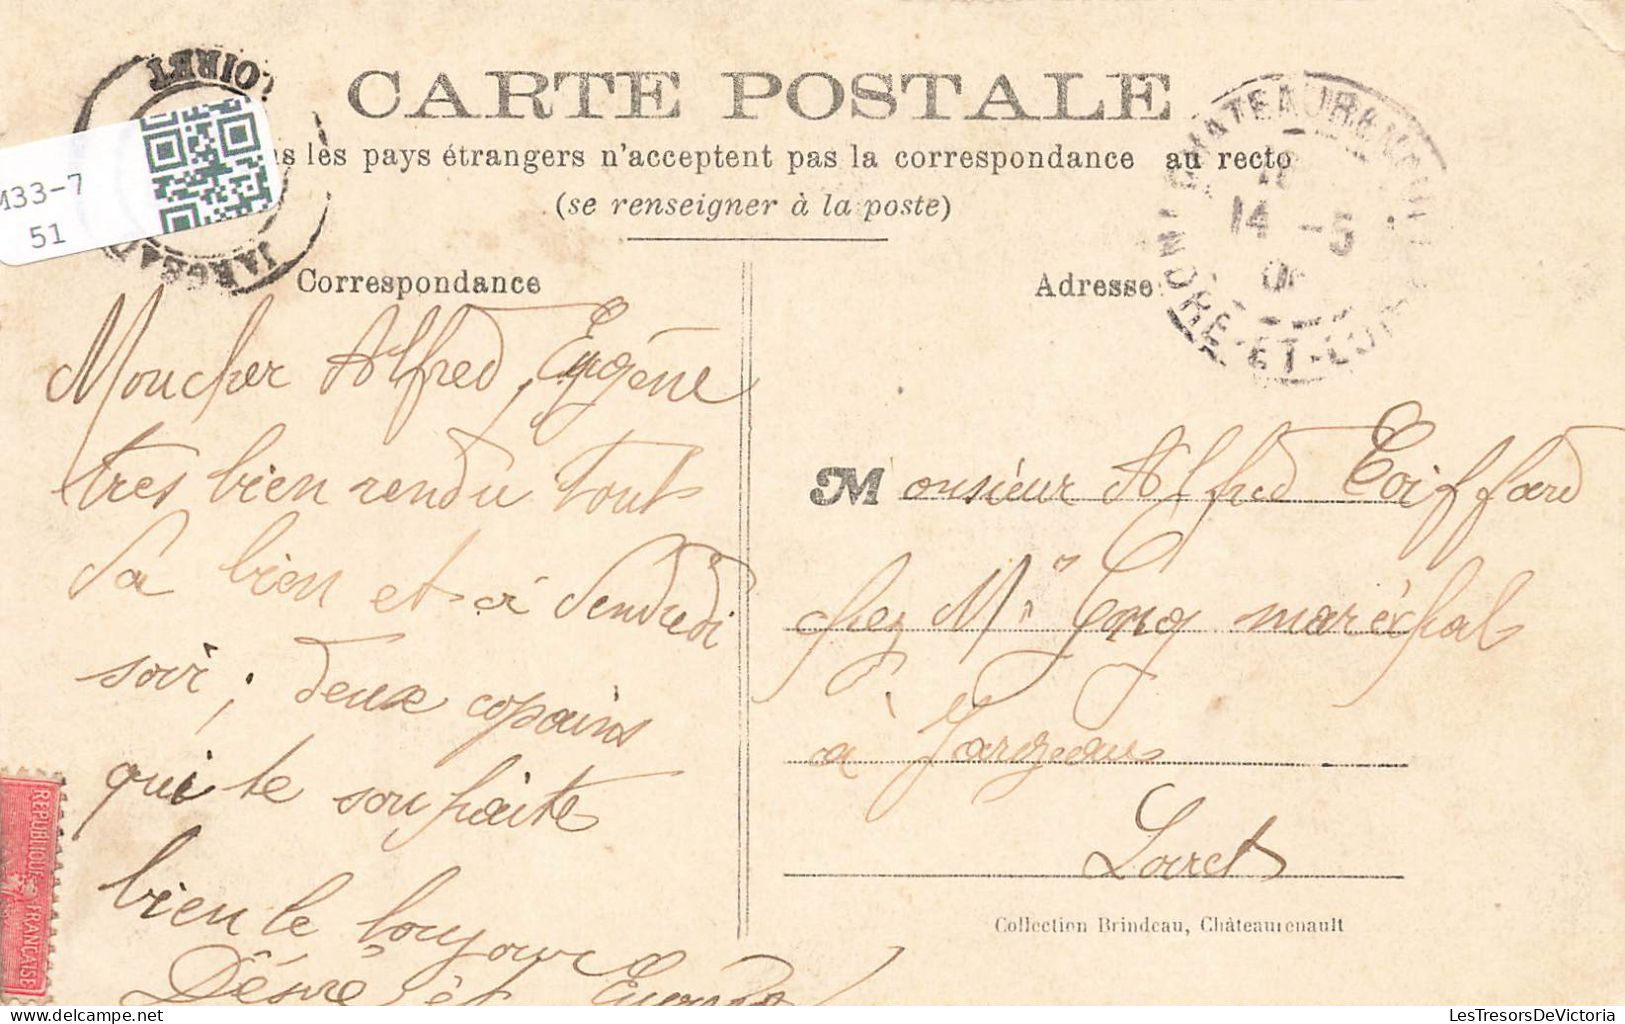 CARTE POSTALE
les pays étrangers n'acceptent pas la correspondance au recto
(se renseigner à la poste)
M33-7
51
LOIRET
JARGEAU
CHATEAURENAULT
14 -5
INDRE-ET-LOIRE
Correspondance
Adresse
Moucher Alfred, Eugène
tres bien rendu tout
Sa bien et à Vendredi
soir, deux copains
qui te souhaite
bien le bonjour
Désiré et Eugène
Monsieur Alfred Coiffard
chez Mr maréchal
à Jargeau
Loiret
Collection Brindeau, Châteaurenault
REPUBLIQUE FRANCAISE
delcampe.net
LesTresorsDeVictoria